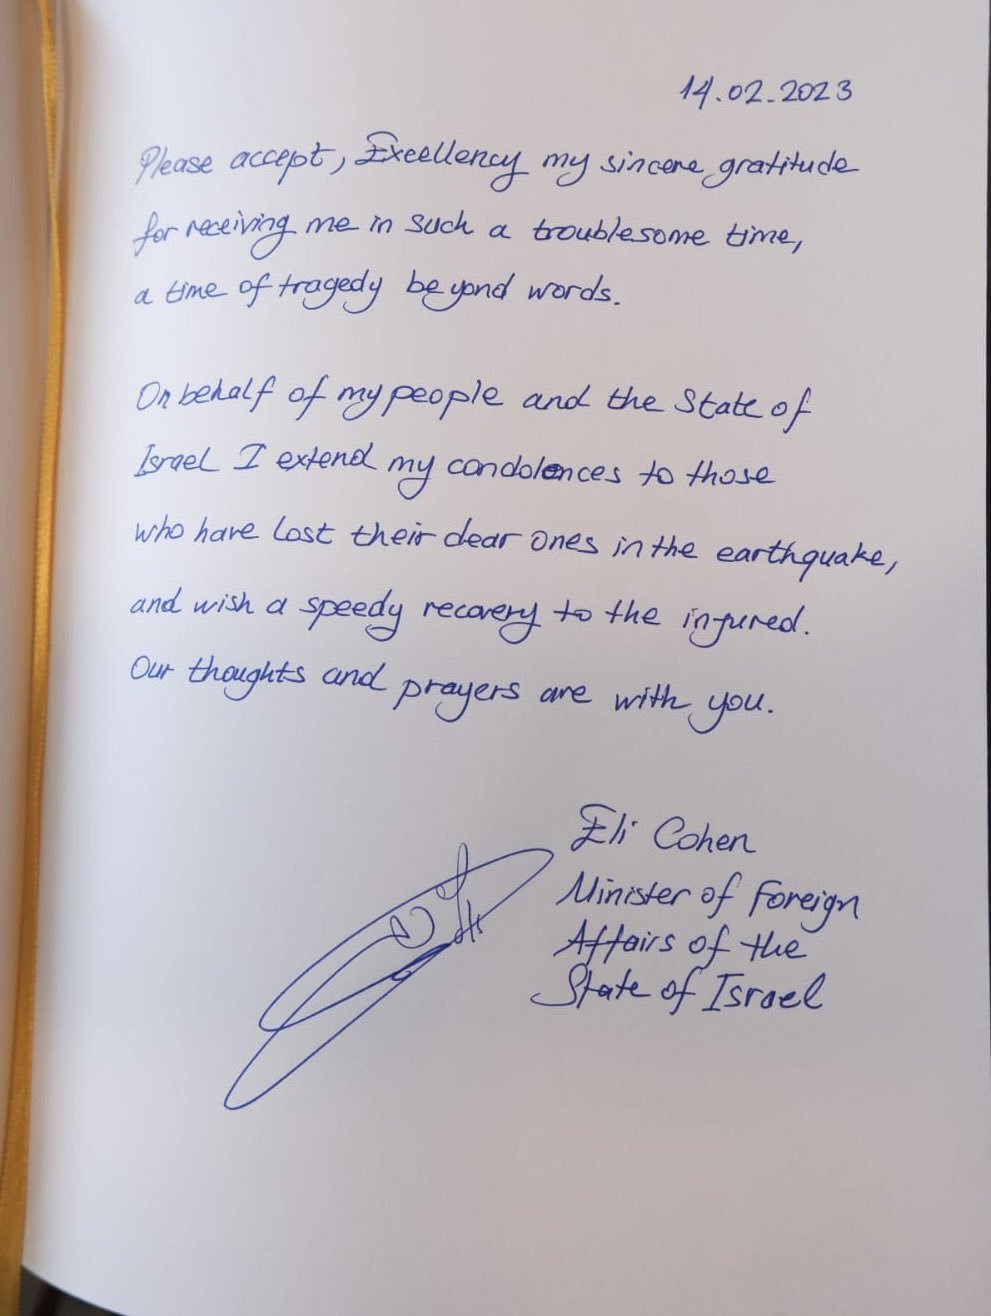 14.02.2023
Please accept, Excellency my sincere gratitude
for receiving me in such a troublesome time,
a time of tragedy beyond words.
On behalf of my people and the State of
Israel I extend my condolences to those
who have lost their dear ones in the earthquake,
and wish a speedy recovery to the injured.
Our thoughts and prayers are with you.
Eli Cohen
Minister of Foreign
Affairs of the
State of Israel